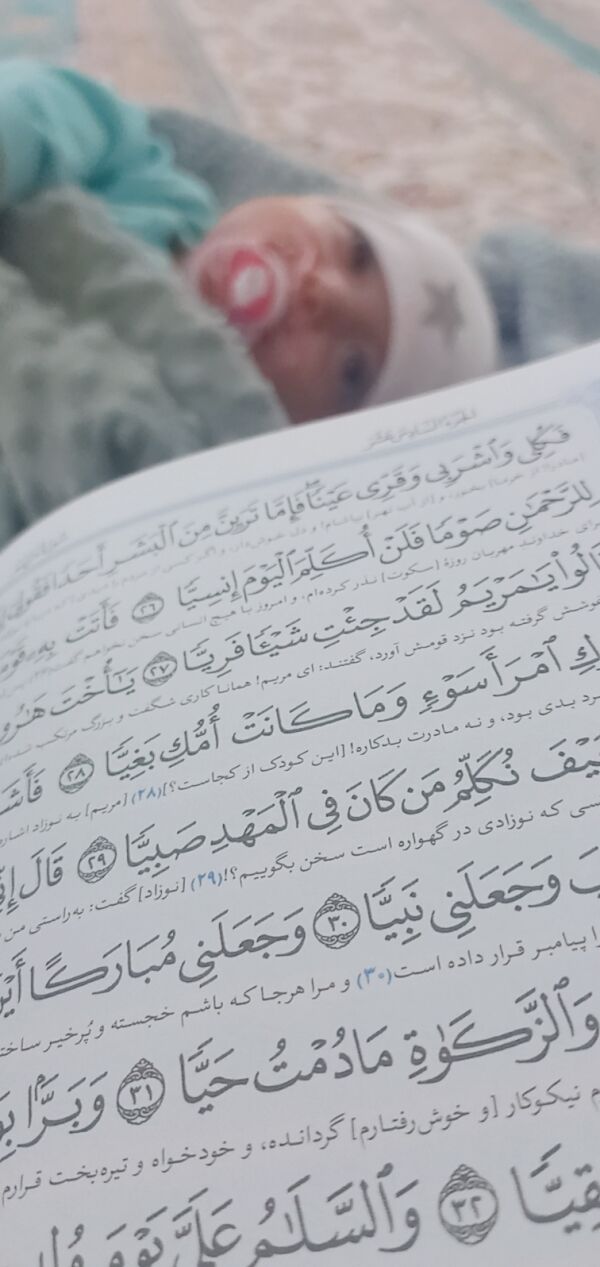 الجزء السادس عشر
فَكُلِي وَٱشۡرَبِي وَقَرِّي عَيۡنٗاۖ فَإِمَّا تَرَيِنَّ مِنَ ٱلۡبَشَرِ أَحَدٗا فَقُولِيٓ
لِلرَّحۡمَٰنِ صَوۡمٗا فَلَنۡ أُكَلِّمَ ٱلۡيَوۡمَ إِنسِيّٗا ٢٦ فَأَتَتۡ بِهِۦ
برای خداوند مهربان روزهٔ [سکوت] نذر کرده‌ام، و امروز با هیچ انسانی سخن نخواهم گفت
يَٰمَرۡيَمُ لَقَدۡ جِئۡتِ شَيۡـٔٗا فَرِيّٗا ٢٧ يَٰٓأُخۡتَ
گرفته بود نزد قومش آورد، گفتند: ای مریم! همانا کاری شگفت و بزرگ مرتکب
ٱمۡرَأَ سَوۡءٖ وَمَا كَانَتۡ أُمُّكِ بَغِيّٗا ٢٨
بدی بود، و نه مادرت بدکاره! [این کودک از کجاست؟] (۲۸) [مریم] به نوزاد
نُكَلِّمُ مَن كَانَ فِي ٱلۡمَهۡدِ صَبِيّٗا ٢٩ قَالَ
که نوزادی در گهواره است سخن بگوییم؟! (۲۹) [نوزاد] گفت: به‌راستی من
وَجَعَلَنِي نَبِيّٗا ٣٠ وَجَعَلَنِي مُبَارَكًا
پیامبر قرار داده است (۳۰) و مرا هرجا که باشم خجسته و پُرخیر
وَٱلزَّكَوٰةِ مَا دُمۡتُ حَيّٗا ٣١ وَبَرَّۢا
نیکوکار [و خوش‌رفتارم] گردانده، و خودخواه و تیره‌بخت قرارم
٣٢ وَٱلسَّلَٰمُ عَلَيَّ يَوۡمَ